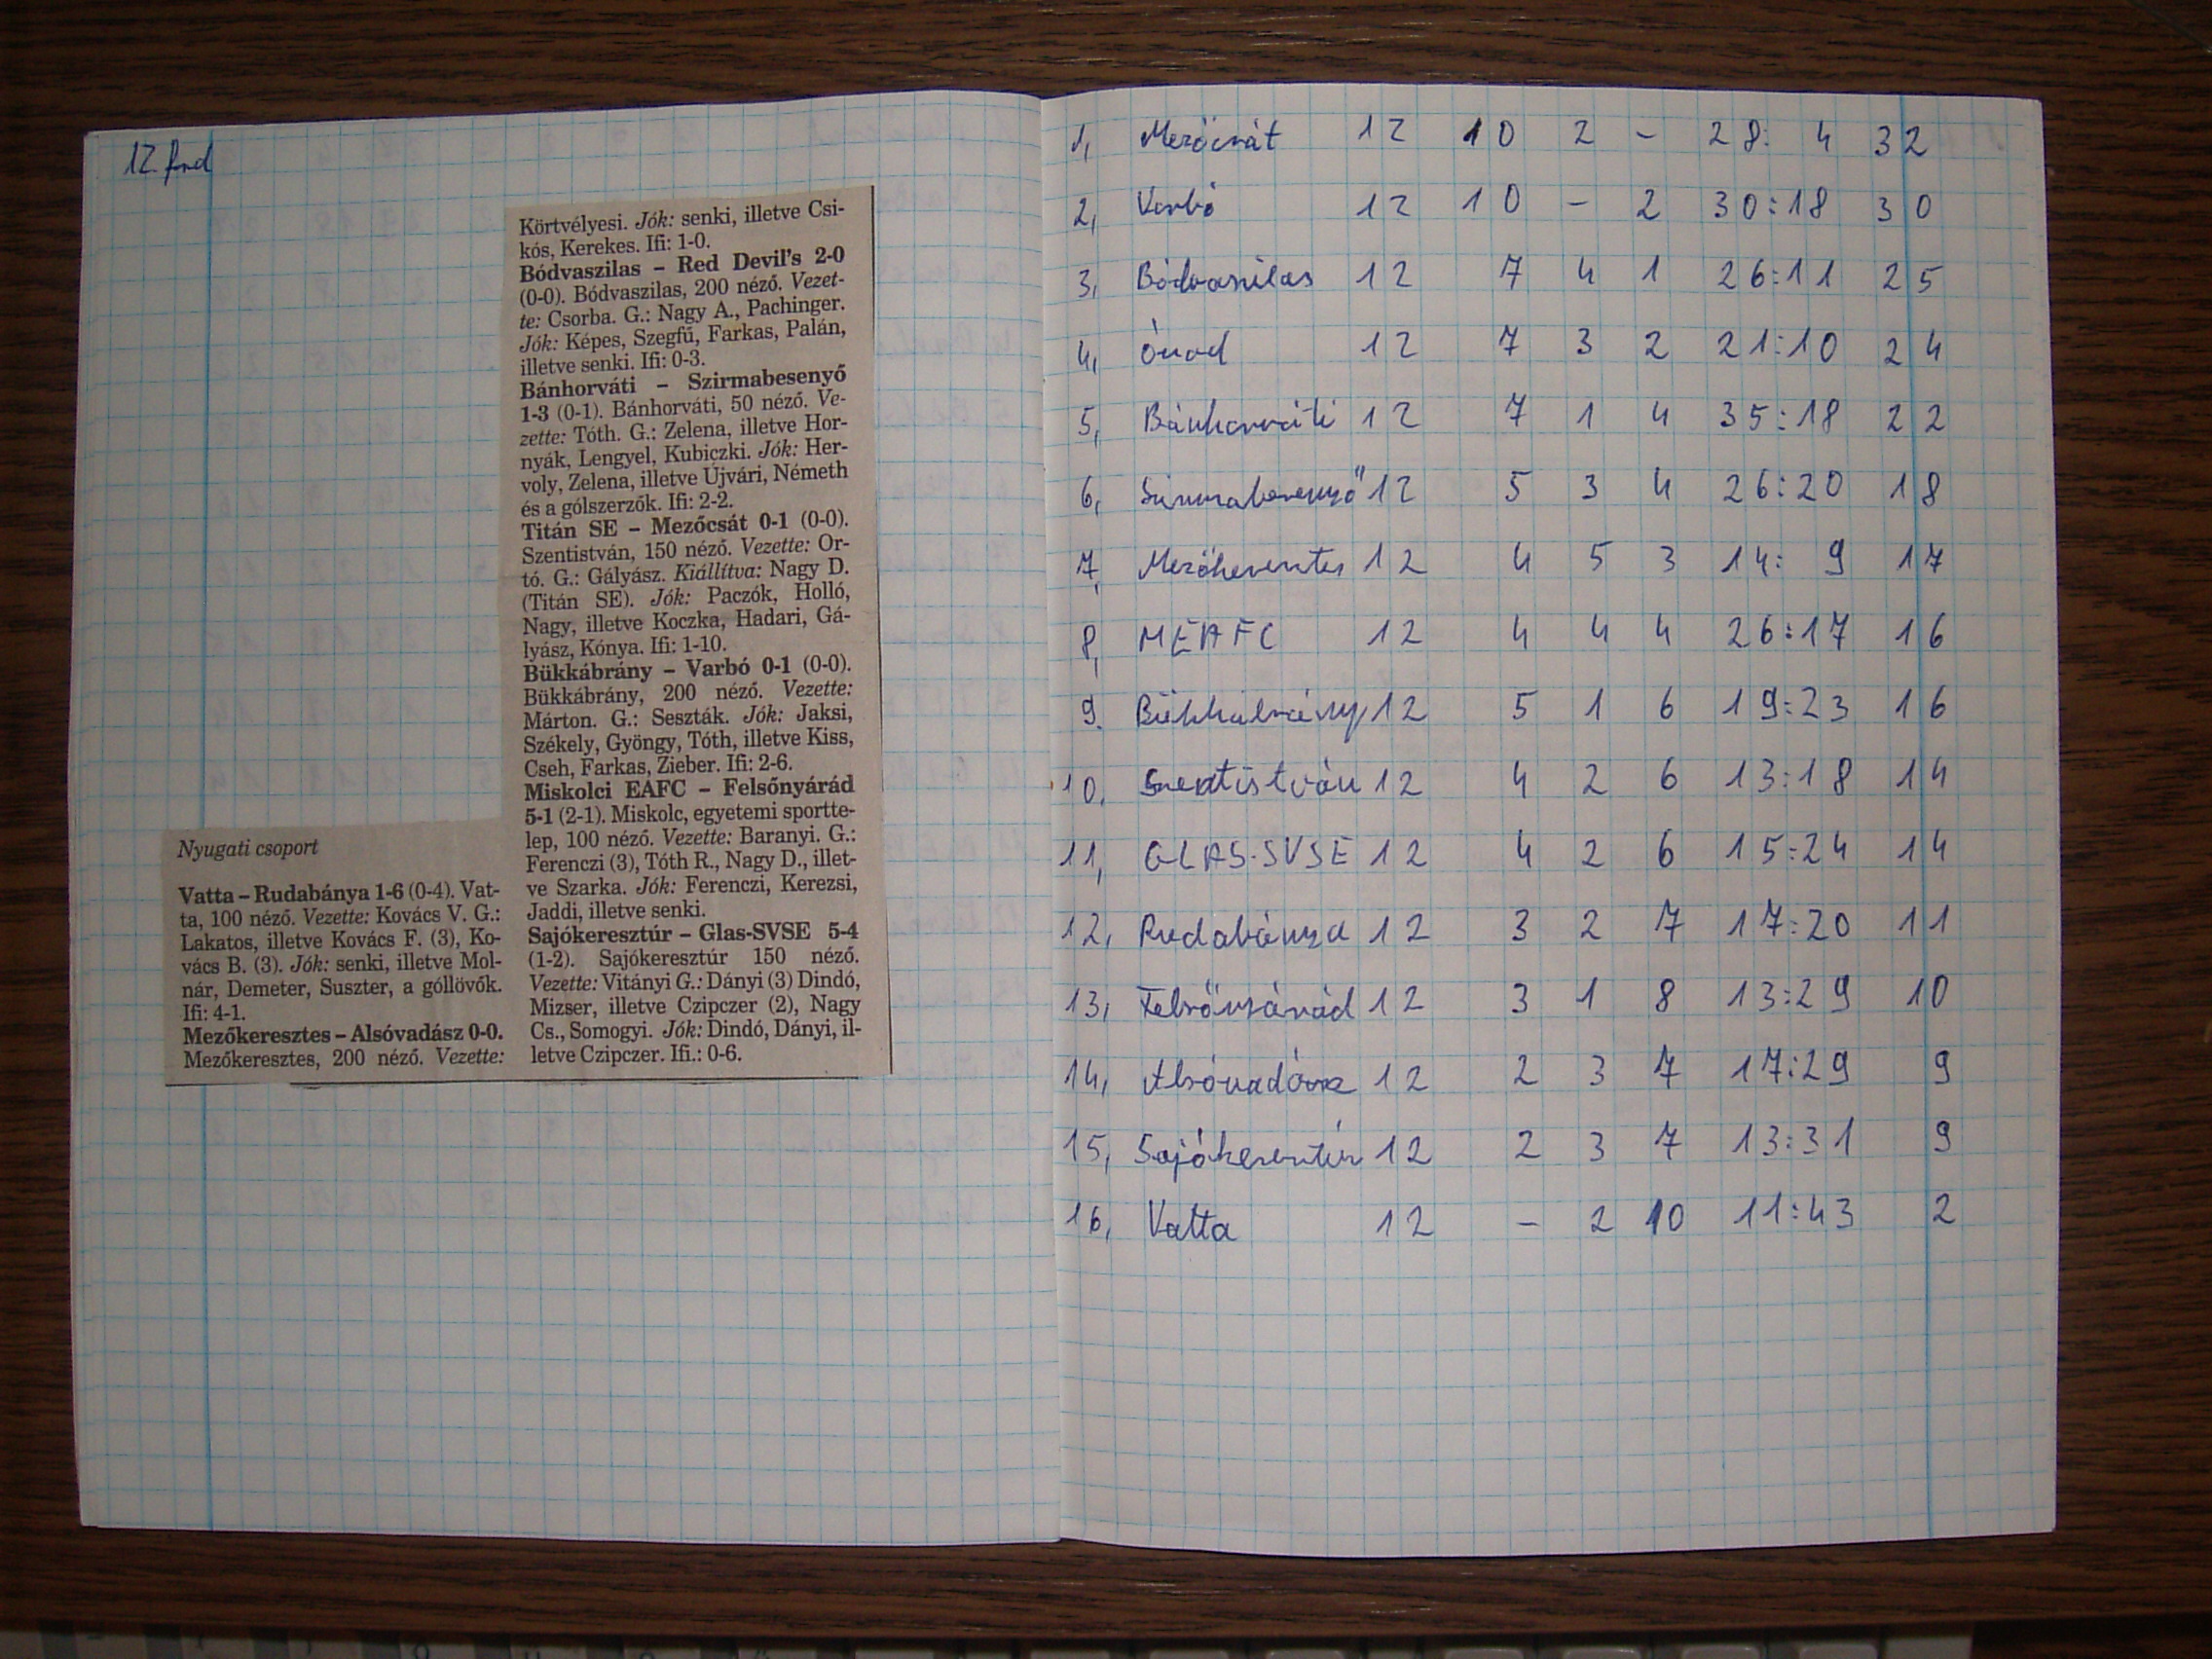 12. ford
Nyugati csoport
Vatta – Rudabánya 1-6 (0-4). Vat-
ta, 100 néző. Vezette: Kovács V. G.:
Lakatos, illetve Kovács F. (3), Ko-
vács B. (3). Jók: senki, illetve Mol-
nár, Demeter, Suszter, a góllövők.
Ifi: 4-1.
Mezőkeresztes – Alsóvadász 0-0.
Mezőkeresztes, 200 néző. Vezette:
Körtvélyesi. Jók: senki, illetve Csi-
kós, Kerekes. Ifi: 1-0.
Bódvaszilas – Red Devil's 2-0
(0-0). Bódvaszilas, 200 néző. Vezet-
te: Csorba. G.: Nagy A., Pachinger.
Jók: Képes, Szegfű, Farkas, Palán,
illetve senki. Ifi: 0-3.
Bánhorváti – Szirmabesenyő
1-3 (0-1). Bánhorváti, 50 néző. Ve-
zette: Tóth. G.: Zelena, illetve Hor-
nyák, Lengyel, Kubiczki. Jók: Her-
voly, Zelena, illetve Újvári, Németh
és a gólszerzők. Ifi: 2-2.
Titán SE – Mezőcsát 0-1 (0-0).
Szentistván, 150 néző. Vezette: Or-
tó. G.: Gályász. Kiállítva: Nagy D.
(Titán SE). Jók: Paczók, Holló,
Nagy, illetve Koczka, Hadari, Gá-
lyász, Kónya. Ifi: 1-10.
Bükkábrány – Varbó 0-1 (0-0).
Bükkábrány, 200 néző. Vezette:
Márton. G.: Seszták. Jók: Jaksi,
Székely, Gyöngy, Tóth, illetve Kiss,
Cseh, Farkas, Zieber. Ifi: 2-6.
Miskolci EAFC – Felsőnyárád
5-1 (2-1). Miskolc, egyetemi sportte-
lep, 100 néző. Vezette: Baranyi. G.:
Ferenczi (3), Tóth R., Nagy D., illet-
ve Szarka. Jók: Ferenczi, Kerezsi,
Jaddi, illetve senki.
Sajókeresztúr – Glas-SVSE 5-4
(1-2). Sajókeresztúr 150 néző.
Vezette: Vitányi G.: Dányi (3) Dindó,
Mizser, illetve Czipczer (2), Nagy
Cs., Somogyi. Jók: Dindó, Dányi, il-
letve Czipczer. Ifi.: 0-6.
1, Mezőcsát 12 10 2 – 28: 4 32
2, Varbó 12 10 – 2 30:18 30
3, Bódvaszilas 12 7 4 1 26:11 25
4, Ónod 12 7 3 2 21:10 24
5, Bánhorváti 12 7 1 4 35:18 22
6, Szirmabesenyő 12 5 3 4 26:20 18
7, Mezőkeresztes 12 4 5 3 14: 9 17
8, MEAFC 12 4 4 4 26:17 16
9. Bükkábrány 12 5 1 6 19:23 16
10. Szentistván 12 4 2 6 13:18 14
11, GLAS-SVSE 12 4 2 6 15:24 14
12, Rudabánya 12 3 2 7 17:20 11
13, Felsőnyárád 12 3 1 8 13:29 10
14, Alsóvadász 12 2 3 7 17:29 9
15, Sajókeresztúr 12 2 3 7 13:31 9
16, Vatta 12 – 2 10 11:43 2